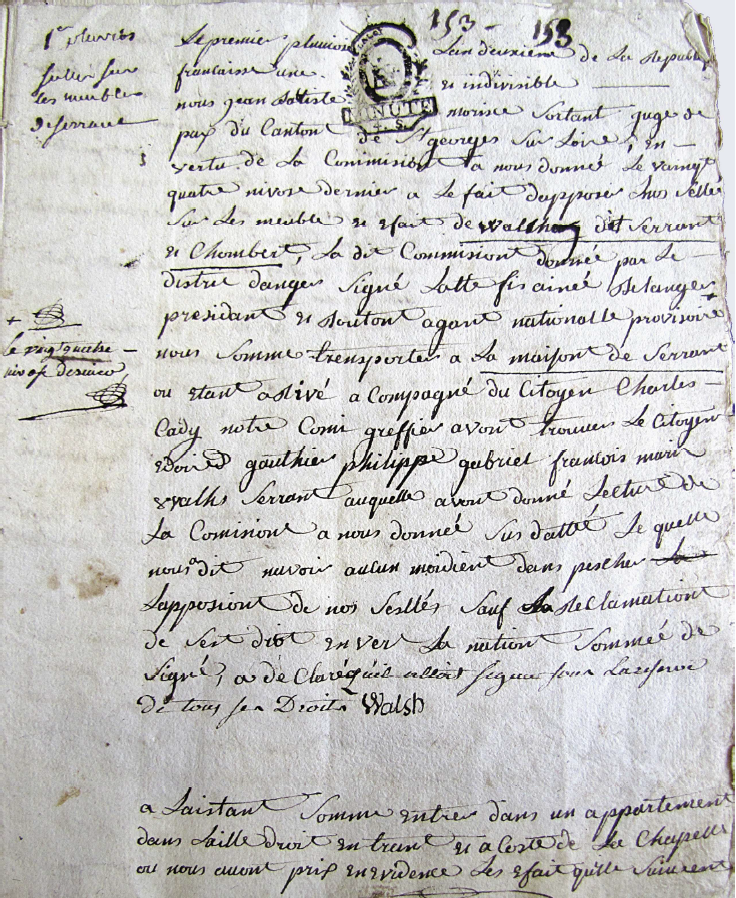 153 - 153
1er pluviose
seller sur
les meubles
de Serrant
Le premier pluviose Lan deuxieme de La Republi
francaisse une en indivisible
MINUTE
nous jean Batiste morince Sortant guge de
paix du Canton de St georges Sur Loire, en
vertu de La Commision a nous donné Le vaingt
quatre nivose dernier a Le fait dapposer nos Selle
Sur Les meuble et efait de Walsh dit Serrant
et Chombert, La dit Commision donnée par Le
distric dangers Signé Latte fis ainée Delanger
presidant et Boutont agant nationalle provisoire
+
Le vingt quatre
nous Somme transporter a La maisont de Serrant
ou Etant arivé a Compagné du Citoyen Charles
Cady notre Comi greffier avont trouver Le Citoyen
Edouard gauthier philippe gabriel francois marie
Walhs Serrant auquelle avont donné Lecture de
La Comisiont a nous donneé Sus datté Le quelle
nous a dit navoir aucun moidient dans pescher
Lapposiont de nos Sesllés Sauf Reclamationt
de Sest drot en ver La nation Sommée de
Signé, a de Claré quil alloit signer sous La reserve
de tous ses Droits Walsh
a Laistant Somme entrer dans un appartement
dans Laille droit en trant et a Coste de La Chapelle
ou nous avont pris en evidence Les efait quille Suivent